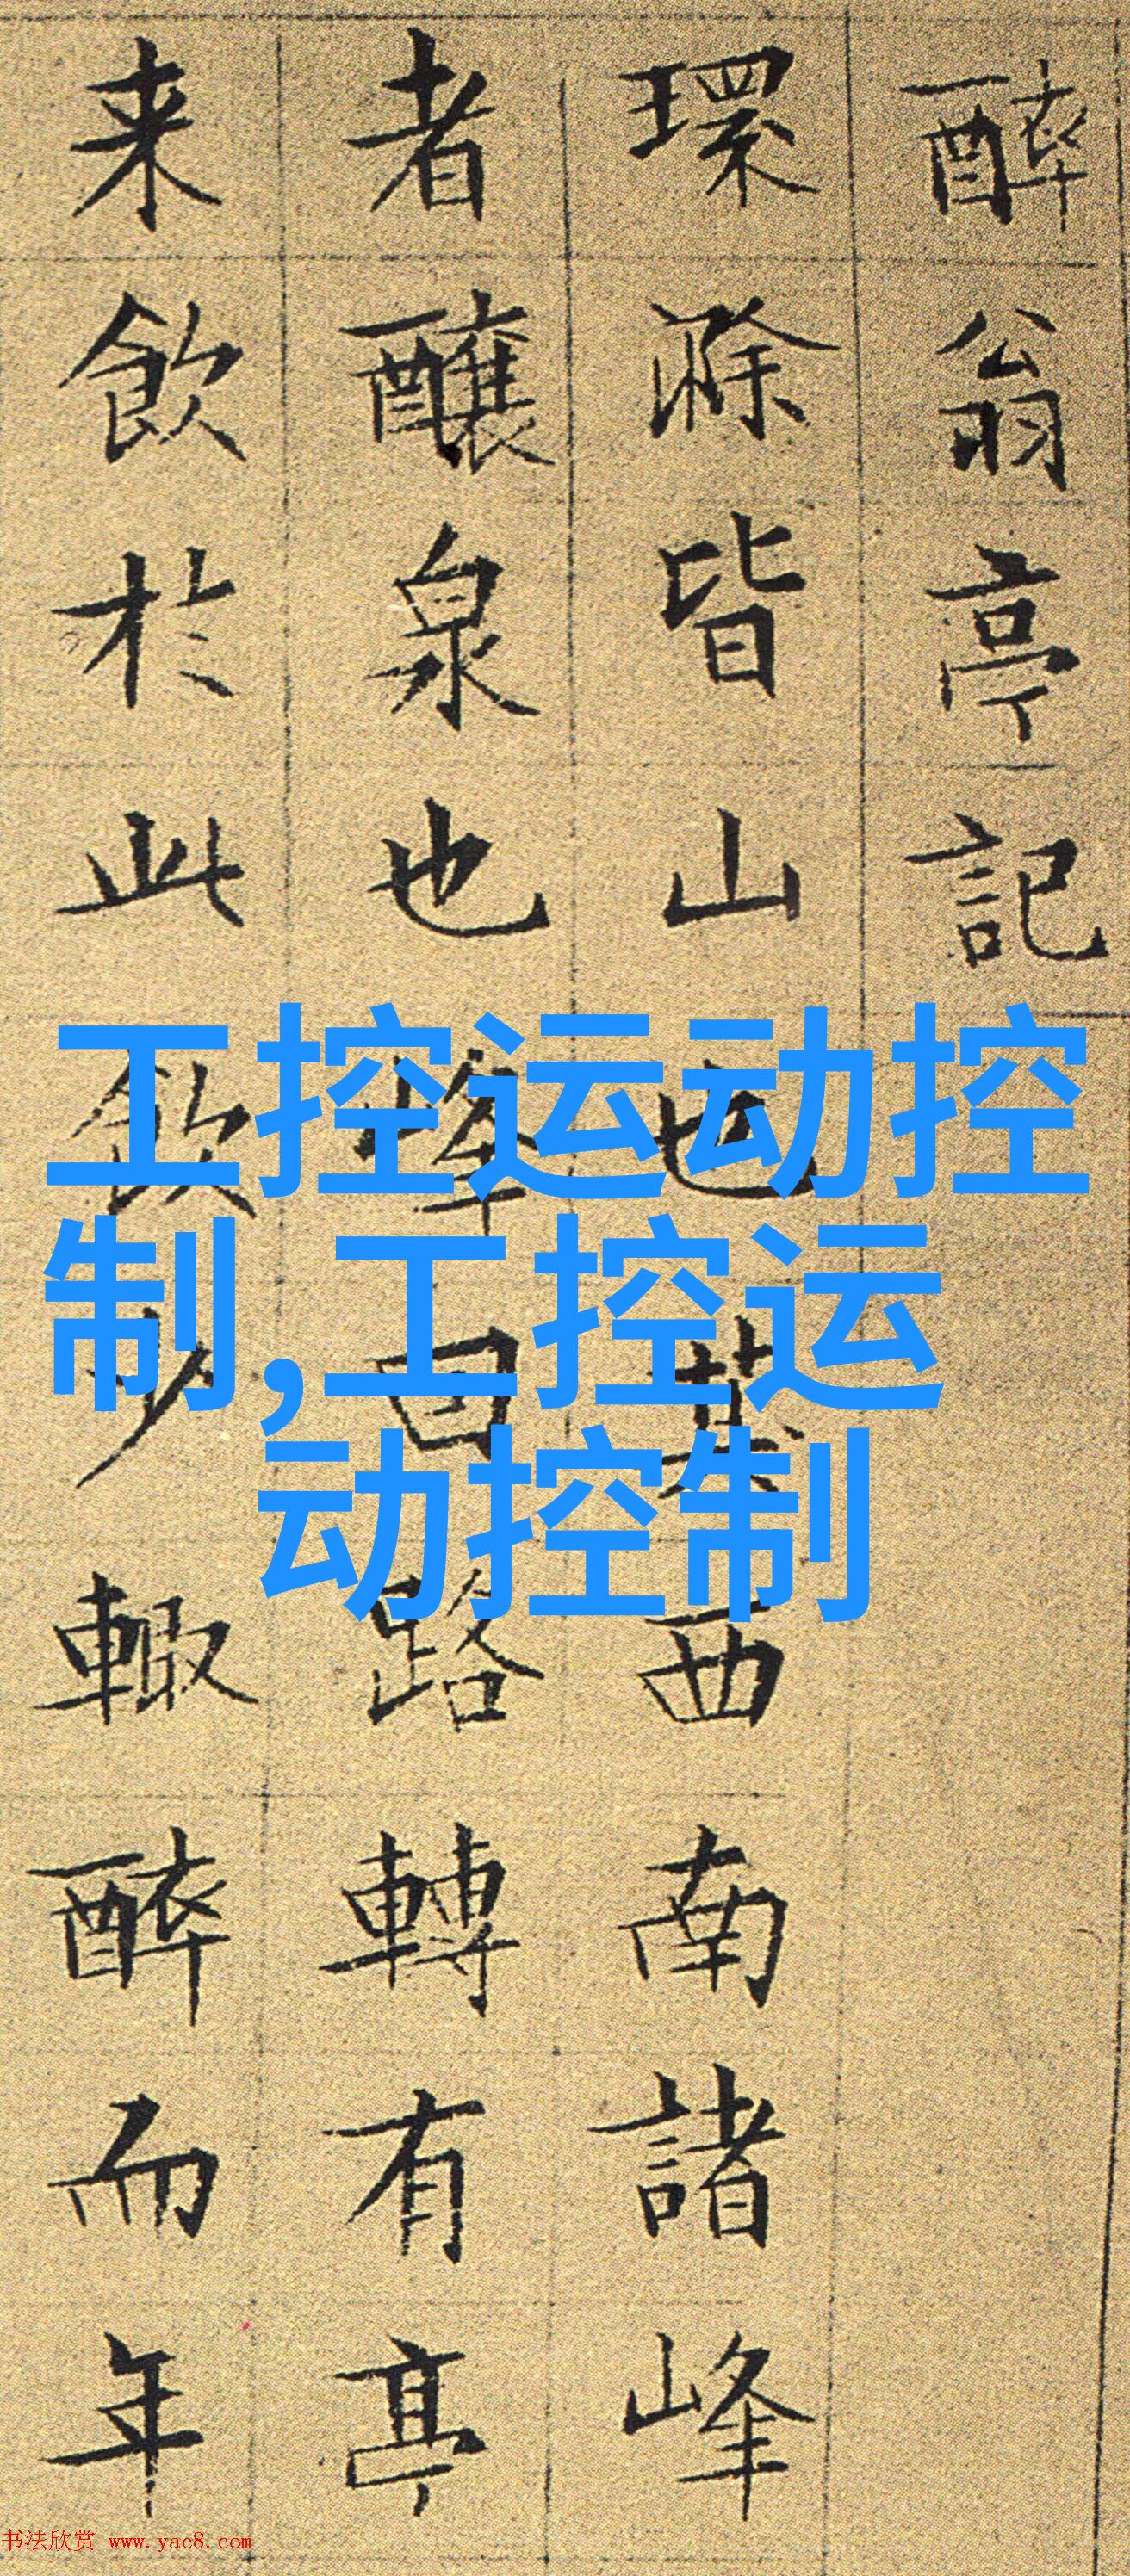 醉翁亭記
環滁皆山也其西南諸峰
者釀泉也峰回路轉有亭
来飲於此飲少輒醉而年
工控运动控
制,工控运
动控制
书法欣赏 www.yac8.com